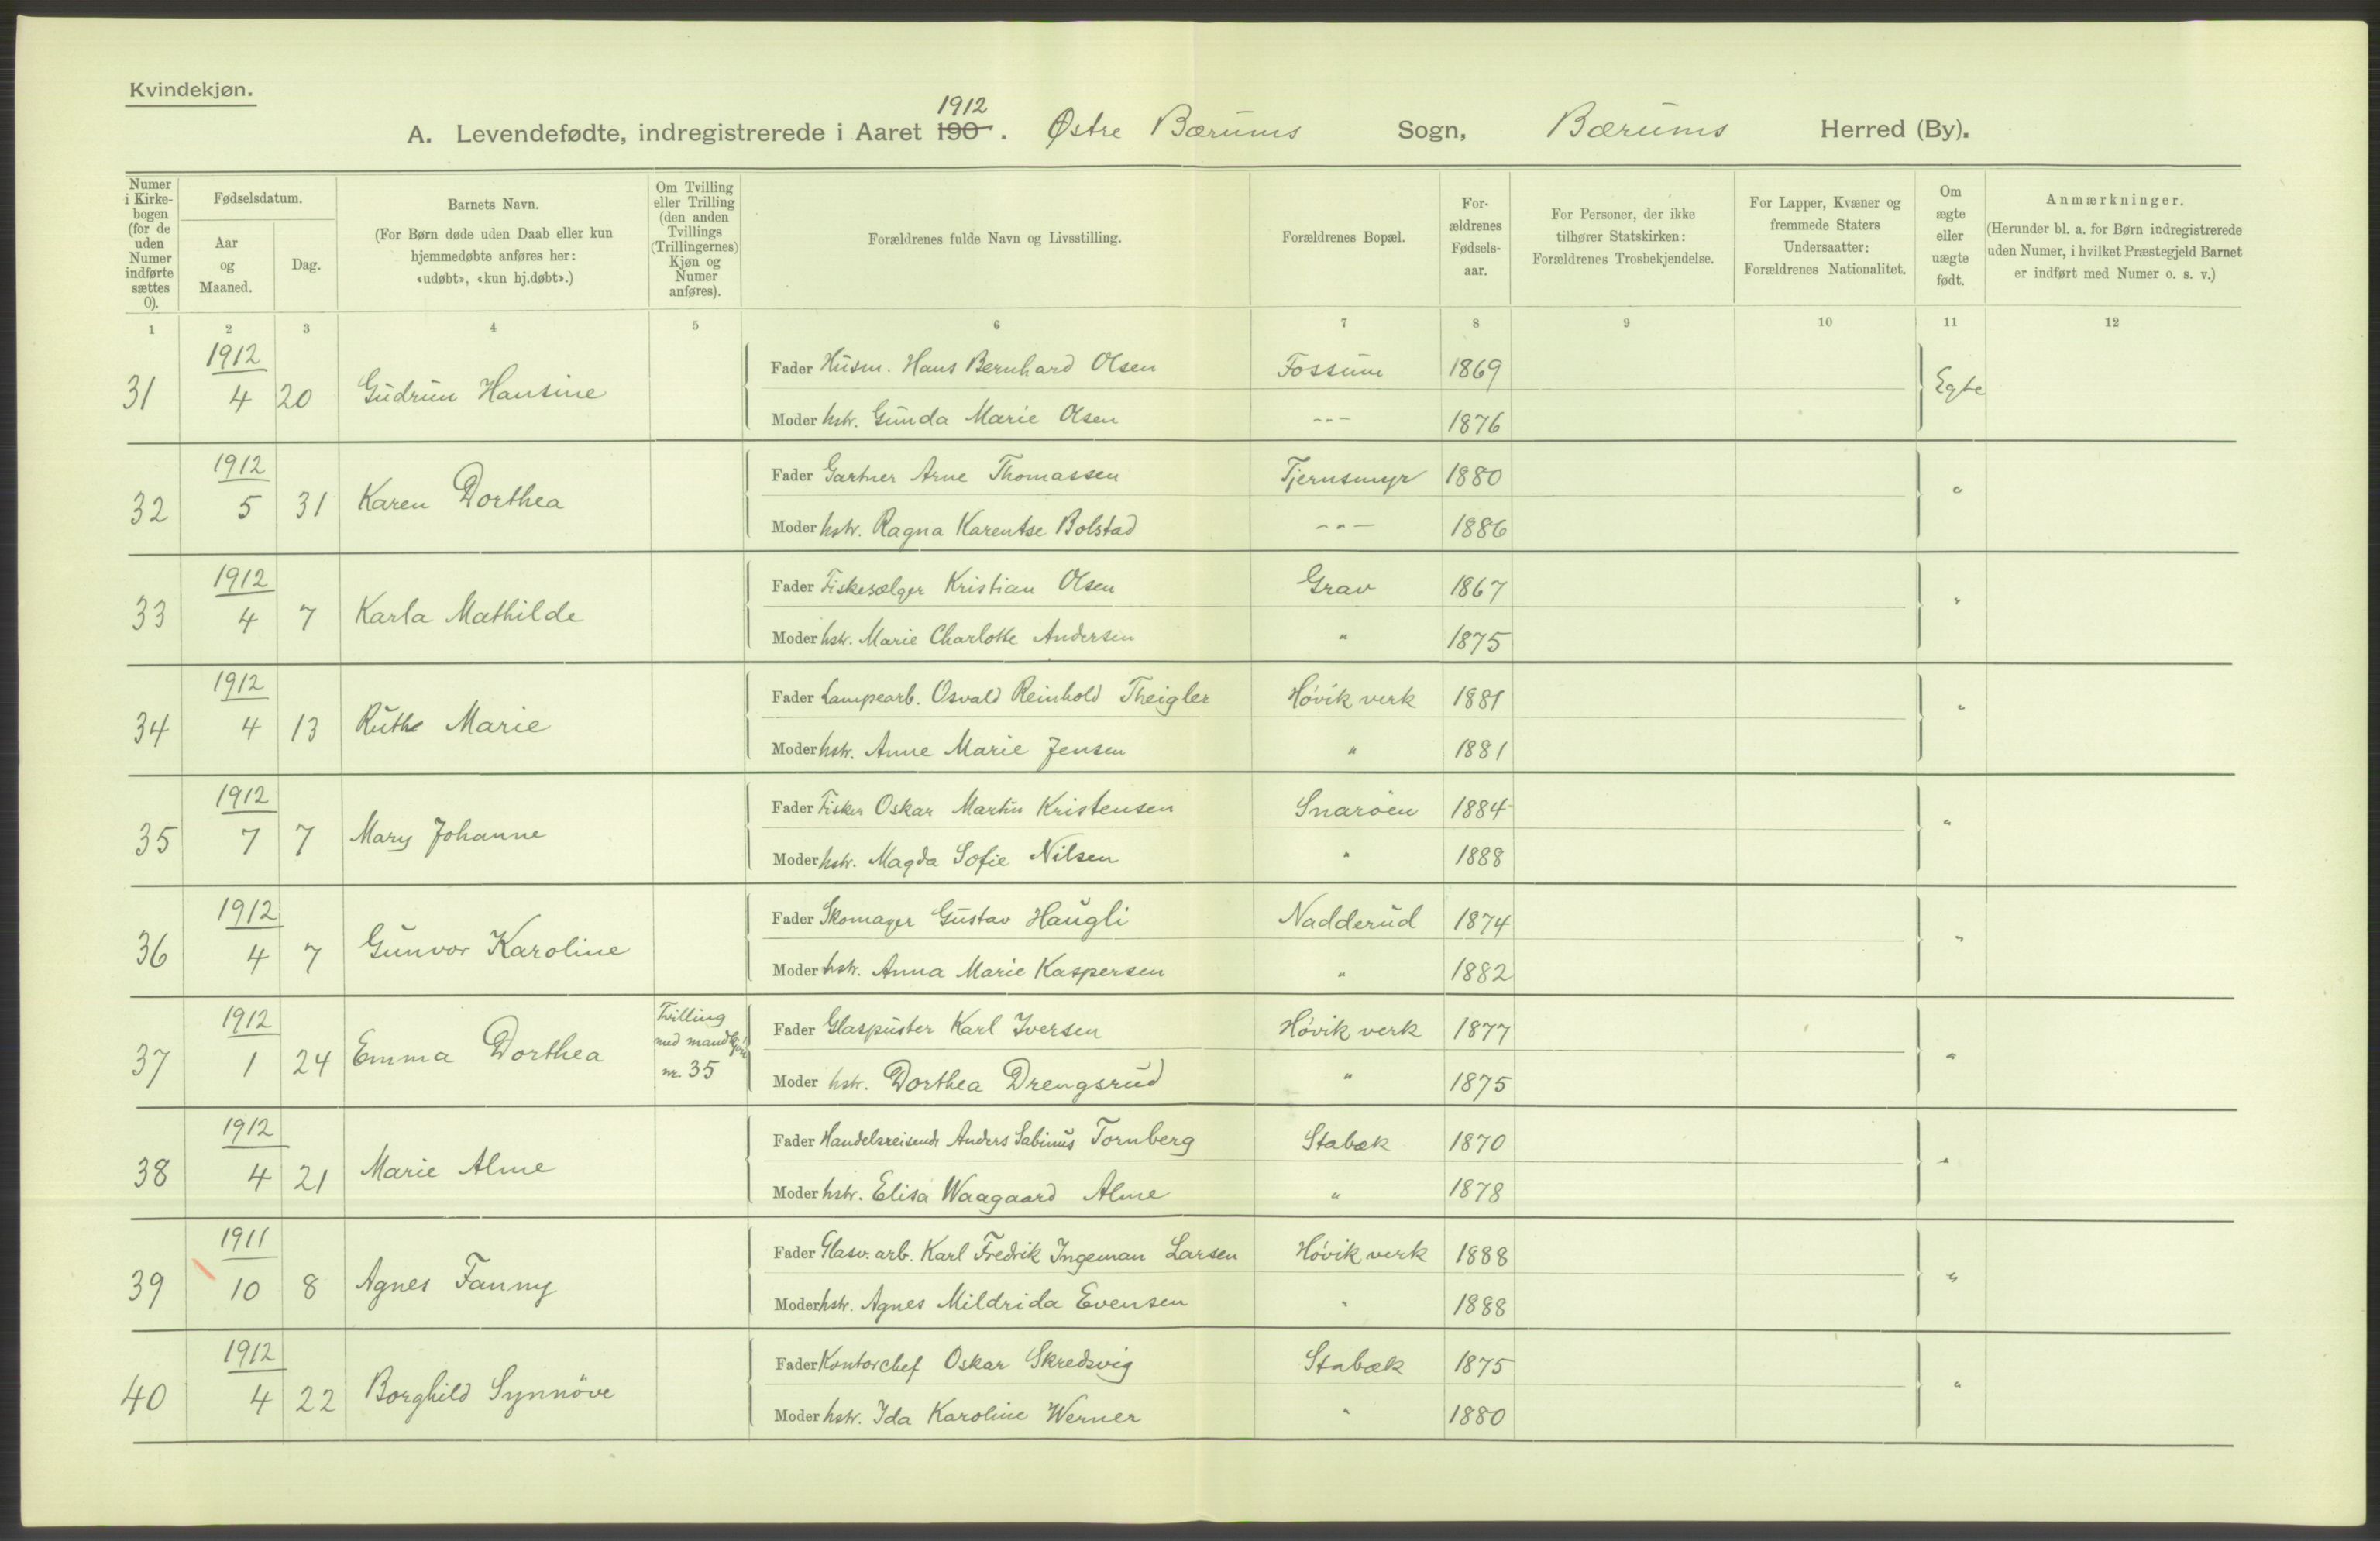 Kvindekjøn.
1912
A. Levendefødte, indregistrerede i Aaret 190 . Østre Bærums Sogn, Bærums Herred (By).
Numer i Kirkebogen (for de uden Numer indførte sættes 0).
Fødselsdatum.
Aar og Maaned.
Dag.
Barnets Navn.
(For Børn døde uden Daab eller kun
hjemmedøbte anføres her:
«udøbt», «kun hj.døbt».)
Om Tvilling
eller Trilling
(den anden
Tvillings
(Trillingernes)
Kjøn og
Numer
anføres).
Forældrenes fulde Navn og Livsstilling.
Forældrenes Bopæl.
For-
ældrenes
Fødsels-
aar.
For Personer, der ikke
tilhører Statskirken:
Forældrenes Trosbekjendelse.
For Lapper, Kvæner og
fremmede Staters
Undersaatter:
Forældrenes Nationalitet.
Om
ægte
eller
uægte
født.
Anmærkninger.
(Herunder bl. a. for Børn indregistrerede
uden Numer, i hvilket Præstegjeld Barnet
er indført med Numer o. s. v.)
1 2 3 4 5 6 7 8 9 10 11 12
1912
31 4 20 Gudrun Hansine
Fader Husm. Hans Bernhard Olsen Fossum 1869 Egte
Moder hstr. Gunda Marie Olsen -"- 1876
1912
32 5 31 Karen Dorthea
Fader Gartner Arne Thomassen Tjernsmyr 1880 "
Moder hstr. Ragna Karentse Bolstad -"- 1886
1912
33 4 7 Karla Mathilde
Fader Fiskesælger Kristian Olsen Grav 1867 "
Moder hstr. Marie Charlotte Andersen " 1875
1912
34 4 13 Ruth Marie
Fader Lampearb. Osvald Reinhold Theigler Høvik verk 1881 "
Moder hstr. Anne Marie Jensen " 1881
1912
35 7 7 Mary Johanne
Fader Fisker Oskar Martin Kristensen Snarøen 1884 "
Moder hstr. Magda Sofie Nilsen " 1888
1912
36 4 7 Gunvor Karoline
Fader Skomager Gustav Haugli Nadderud 1874 "
Moder hstr. Anna Marie Kaspersen " 1882
1912
37 1 24 Emma Dorthea
Tvilling
med mandkjøn
nr. 35
Fader Glaspuster Karl Iversen Høvik verk 1877 "
Moder hstr. Dorthea Drengsrud " 1875
1912
38 4 21 Marie Alme
Fader Handelsreisende Anders Sabinus Tornberg Stabæk 1870 "
Moder hstr. Elisa Waagaard Alme " 1878
1911
39 10 8 Agnes Fanny
Fader Glasv. arb. Karl Fredrik Ingeman Larsen Høvik verk 1888 "
Moder hstr. Agnes Mildrida Evensen " 1888
1912
40 4 22 Borghild Synnöve
Fader Kontorchef Oskar Skredsvig Stabæk 1875 "
Moder hstr. Ida Karoline Werner " 1880